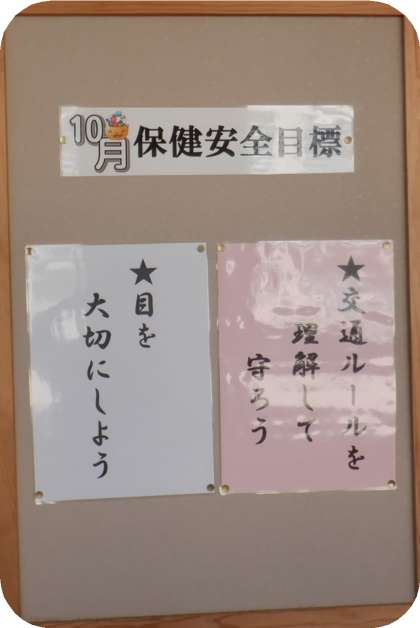 10月 保健安全目標
★交通ルールを
理解して
守ろう
★目を
大切にしよう